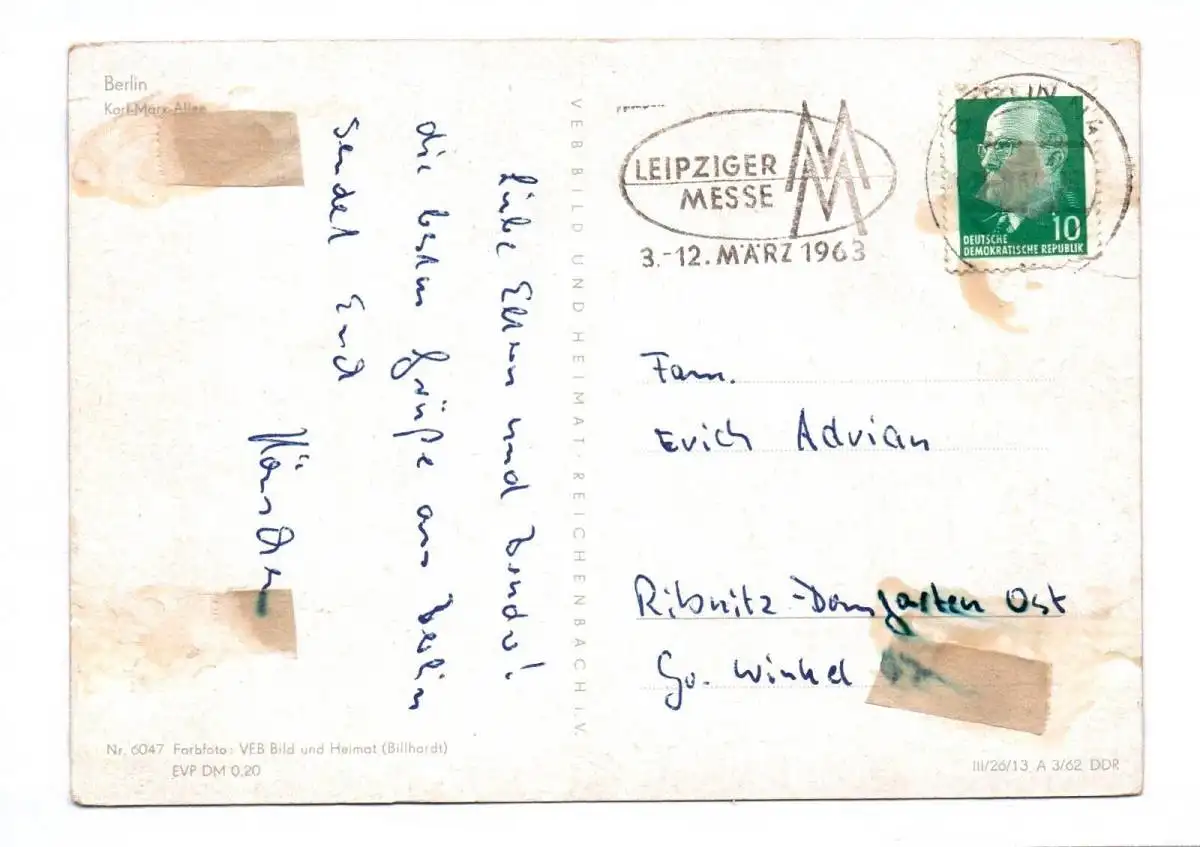 Berlin
Karl-Marx-Allee
Liebe Eltern und Bruder!
die besten Grüße aus Berlin
sendet Euch
Hänschen
VEB BILD UND HEIMAT · REICHENBACH I. V.
Nr. 6047 Farbfoto: VEB Bild und Heimat (Billhardt)
EVP DM 0,20
LEIPZIGER
MESSE
MM
3.-12. MÄRZ 1963
10
DEUTSCHE
DEMOKRATISCHE REPUBLIK
Fam.
Erich Adrian
Ribnitz-Damgarten Ost
Gr. Winkel
III/26/13 A 3/62 DDR